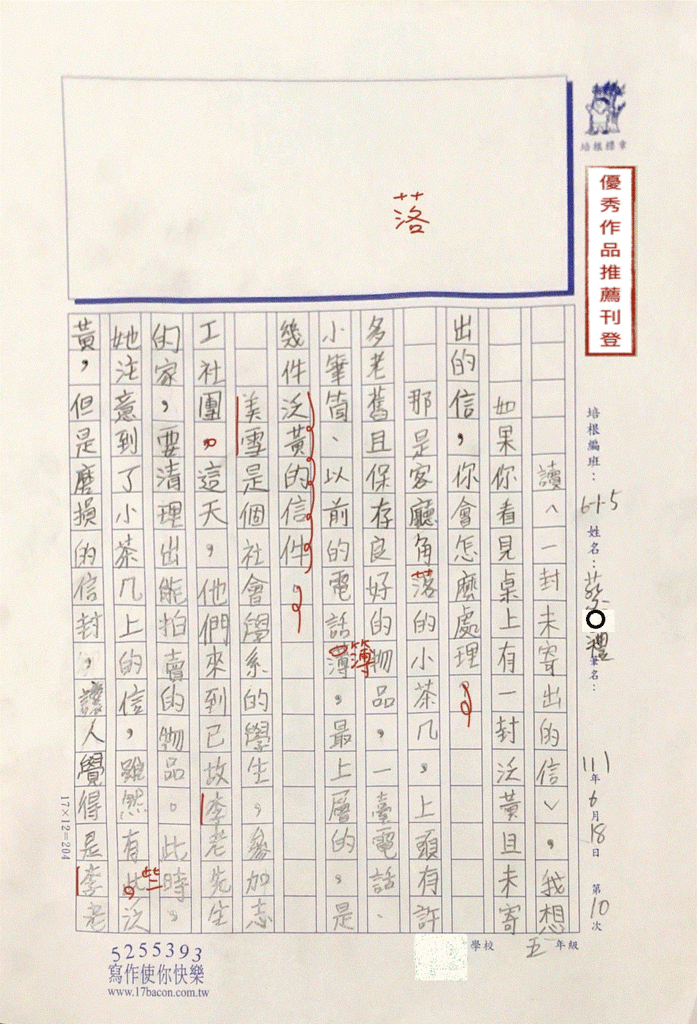 落
培根標章
優秀作品推薦刊登
培根編班：645
姓名：蔡
禮
筆名：
111年6月18日
第10次
讀︿一封未寄出的信﹀，我想
如果你看見桌上有一封泛黃且未寄
出的信，你會怎麼處理
那是客廳角落的小茶几，上頭有許
多老舊且保存良好的物品，一臺電話、
小筆筒、以前的電話薄，最上層的，是
簿
幾件泛黃的信件。
美雪是個社會學系的學生，參加志
工社團。這天，他們來到已故李老先生
的家，要清理出能拍賣的物品。此時，
她注意到了小茶几上的信，雖然有此泛
些
黃，但是磨損的信封，讓人覺得是李老
17×12=204
學校
五年級
5255393
寫作使你快樂
www.17bacon.com.tw